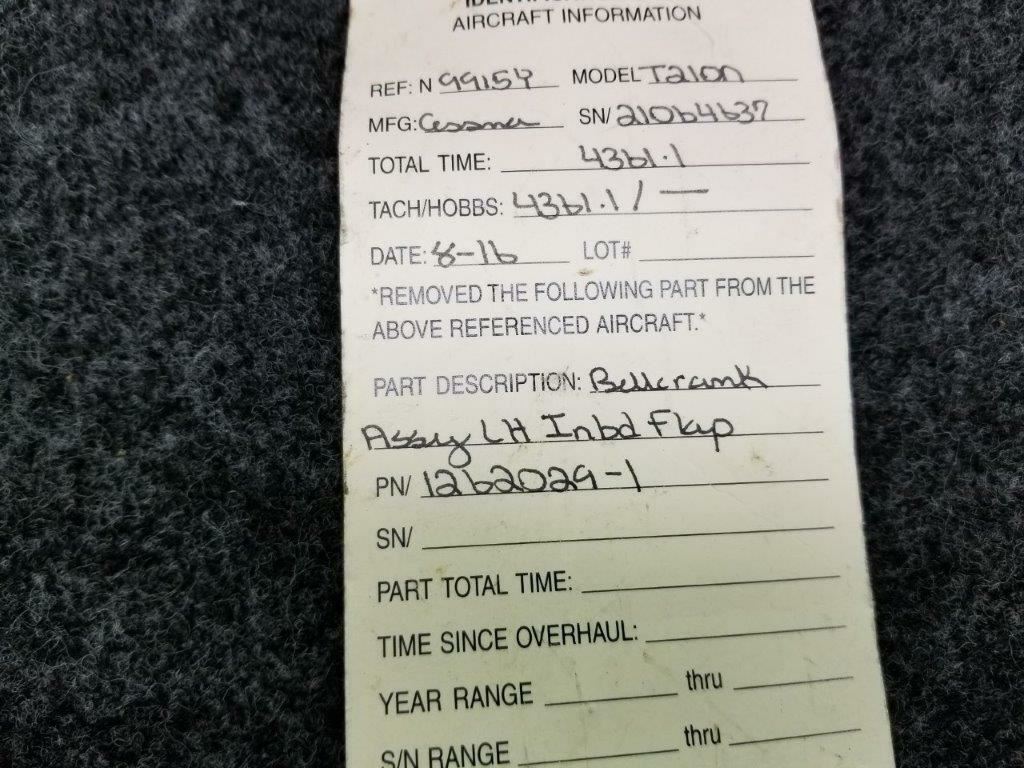 AIRCRAFT INFORMATION
REF: N 99154 MODEL T210N
MFG: Cessna SN/ 21064637
TOTAL TIME: 4361.1
TACH/HOBBS: 4361.1 / —
DATE: 8-16 LOT#
*REMOVED THE FOLLOWING PART FROM THE
ABOVE REFERENCED AIRCRAFT.*
PART DESCRIPTION: Bellcrank
Assy LH Inbd Flap
PN/ 1262029-1
SN/
PART TOTAL TIME:
TIME SINCE OVERHAUL:
YEAR RANGE thru
S/N RANGE thru